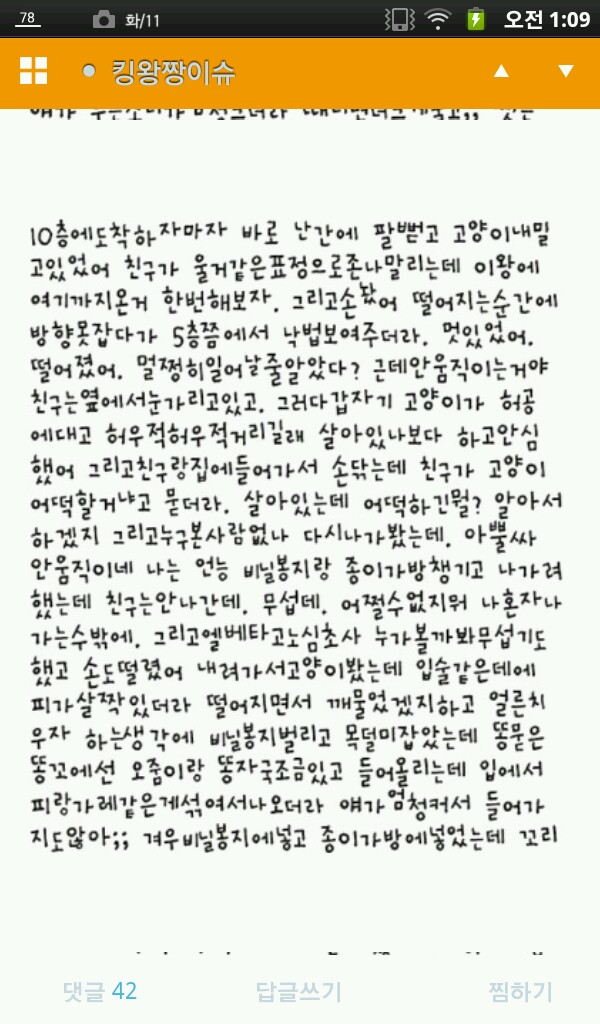 78
화/11
오전 1:09
킹왕짱이슈
10층에도착하자마자 바로 난간에 팔뻗고 고양이내밀
고있었어 친구가 울거같은표정으로존나말리는데 이왕에
여기까지온거 한번해보자. 그리고손놨어 떨어지는순간에
방향못잡다가 5층쯤에서 낙법보여주더라. 멋있었어.
떨어졌어. 멀쩡히일어날줄알았다? 근데안움직이는거야
친구는옆에서눈가리고있고. 그러다갑자기 고양이가 허공
에대고 허우적허우적거리길래 살아있나보다 하고안심
했어 그리고친구랑집에들어가서 손닦는데 친구가 고양이
어떡할거냐고 묻더라. 살아있는데 어떡하긴뭘? 알아서
하겠지 그리고누구본사람없나 다시나가봤는데. 아뿔싸
안움직이네 나는 언능 비닐봉지랑 종이가방챙기고 나가려
했는데 친구는안나간데. 무섭데. 어쩔수없지뭐 나혼자나
가는수밖에. 그리고엘베타고노심초사 누가볼까봐무섭기도
했고 손도떨렸어 내려가서고양이봤는데 입술같은데에
피가살짝있더라 떨어지면서 깨물었겠지하고 얼른치
우자 하는생각에 비닐봉지벌리고 목덜미잡았는데 똥묻은
똥꼬에선 오줌이랑 똥자국조금있고 들어올리는데 입에서
피랑가레같은게섞여서나오더라 얘가엄청커서 들어가
지도않아;; 겨우비닐봉지에넣고 종이가방에넣었는데 꼬리
댓글 42
답글쓰기
찜하기